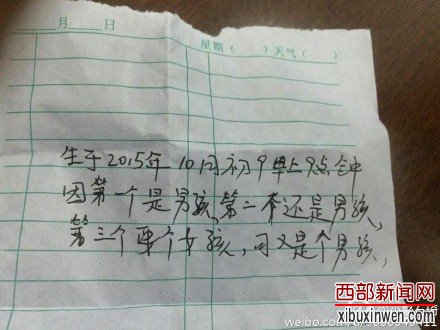 月 日
星期( )天气( )
生于2015年10月初9早上9点钟
因第一个是男孩,第二个还是男孩,
第三个要个女孩,可又是个男孩,
weibo.com/u/
西部新闻网
xibuxinwen.com